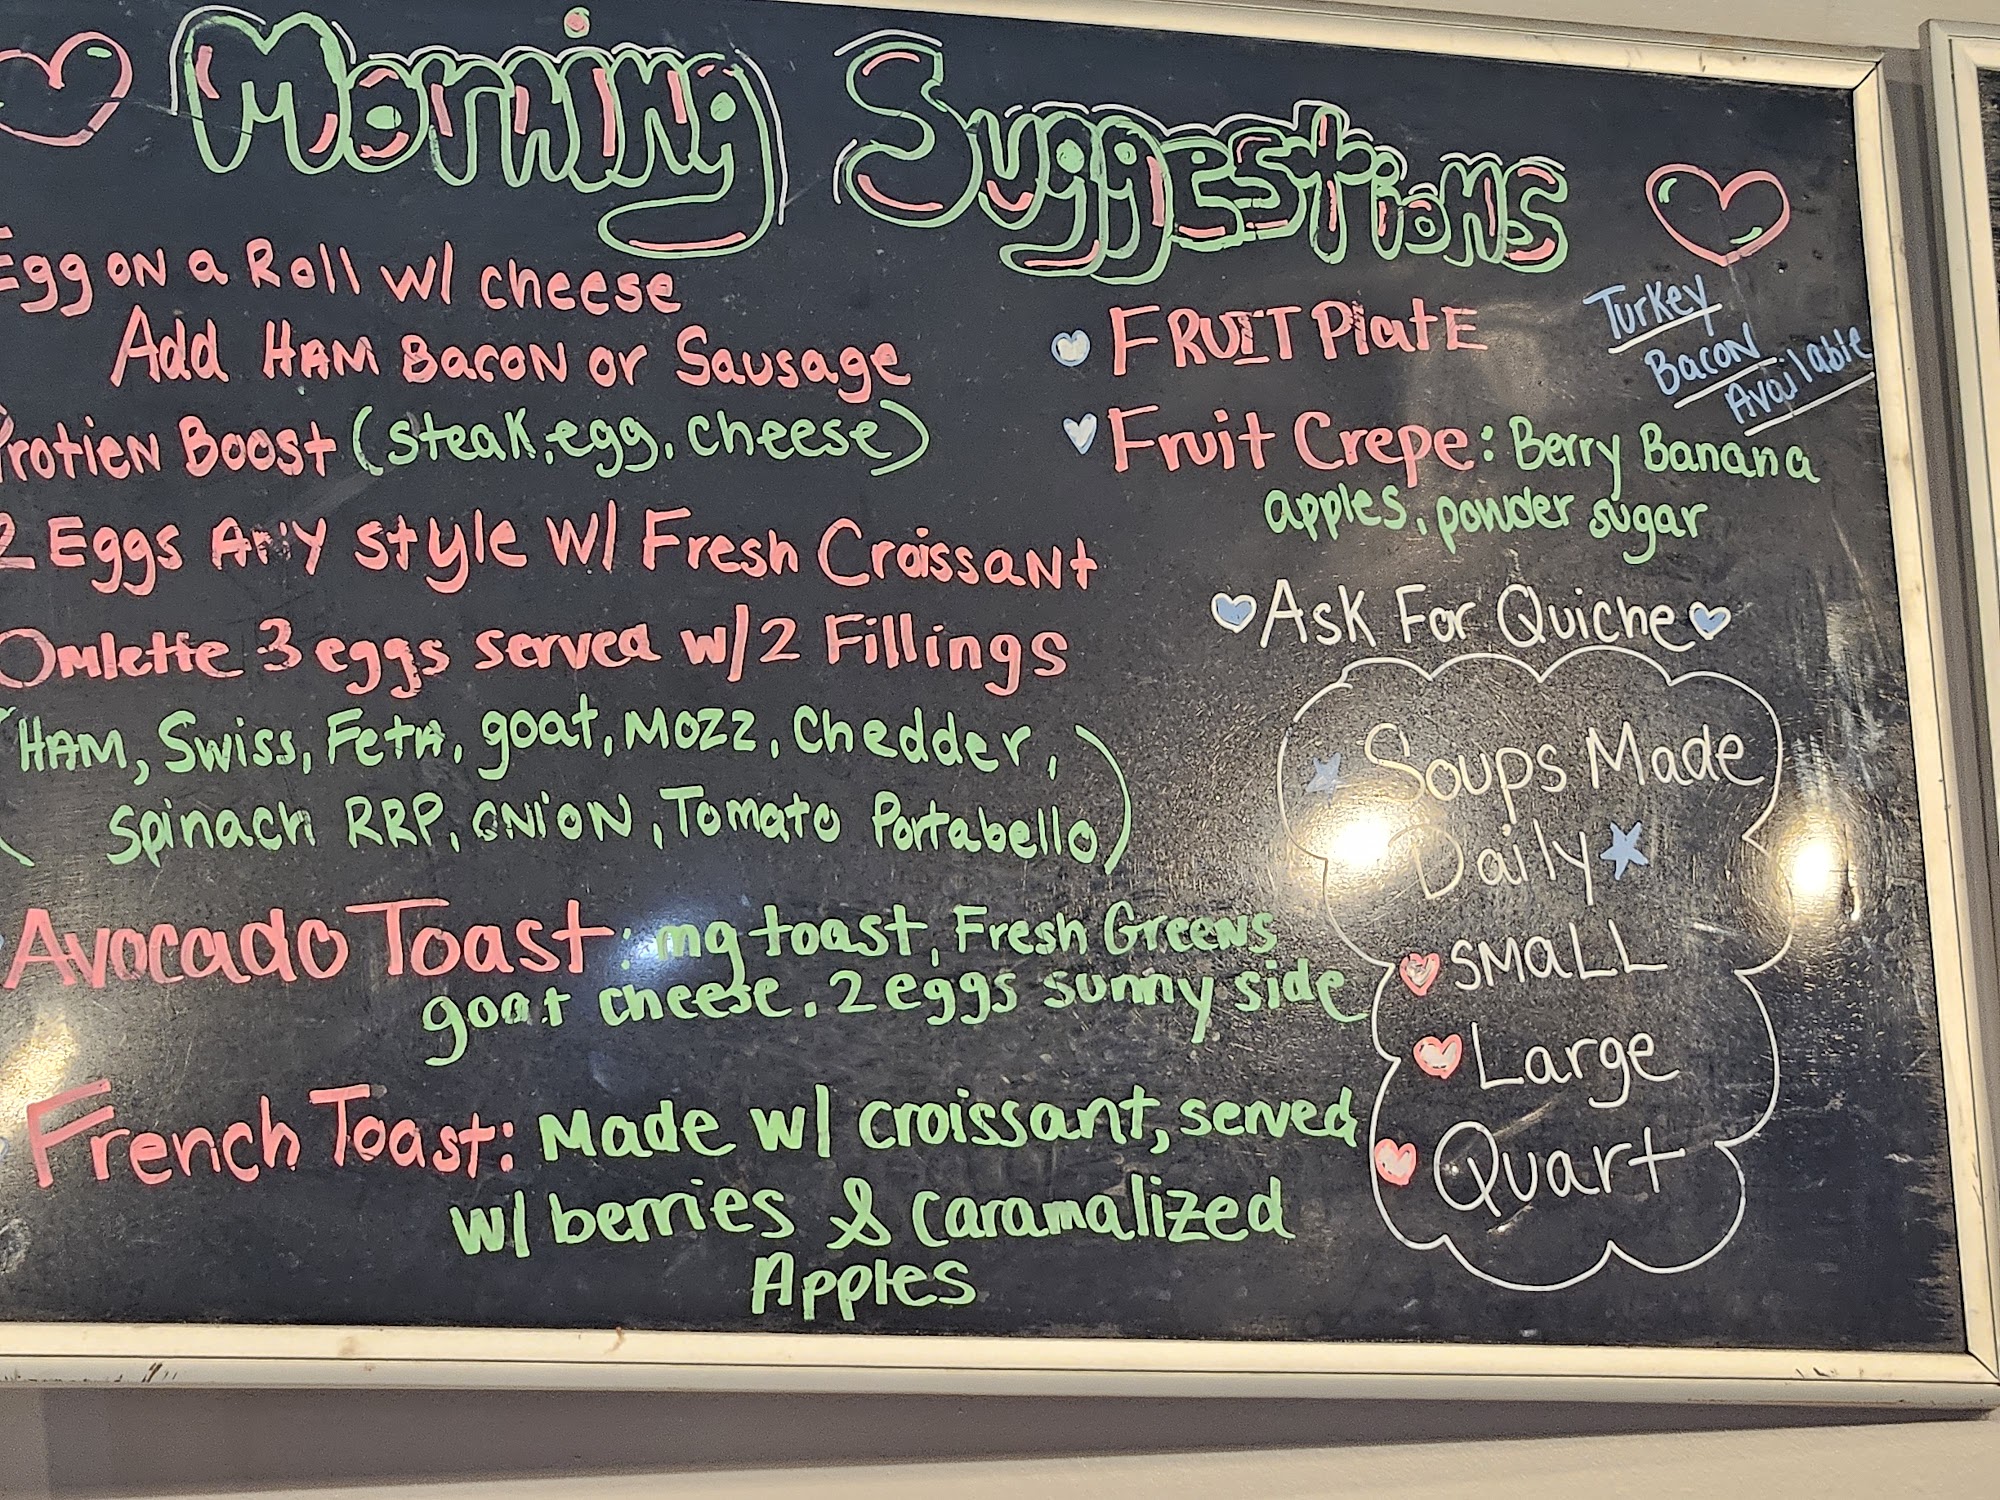 Morning Suggestions
Egg on a Roll w/ cheese
Add HAM BacoN or Sausage
Protien Boost (steak, egg, cheese)
2 Eggs Any style w/ Fresh Croissant
Omlette 3 eggs served w/2 Fillings
(HAM, Swiss, Feta, goat, Mozz, Chedder,
Spinach RRP, ONiON, Tomato Portabello)
Avocado Toast: mg toast, Fresh Greens
goat cheese, 2 eggs sunny side
French Toast: Made w/ croissant, served
w/ berries & caramalized
Apples
FRUIT PlatE
Turkey
Bacon
Available
Fruit Crepe: Berry Banana
apples, powder sugar
Ask For Quiche
Soups Made
Daily
SMaLL
Large
Quart